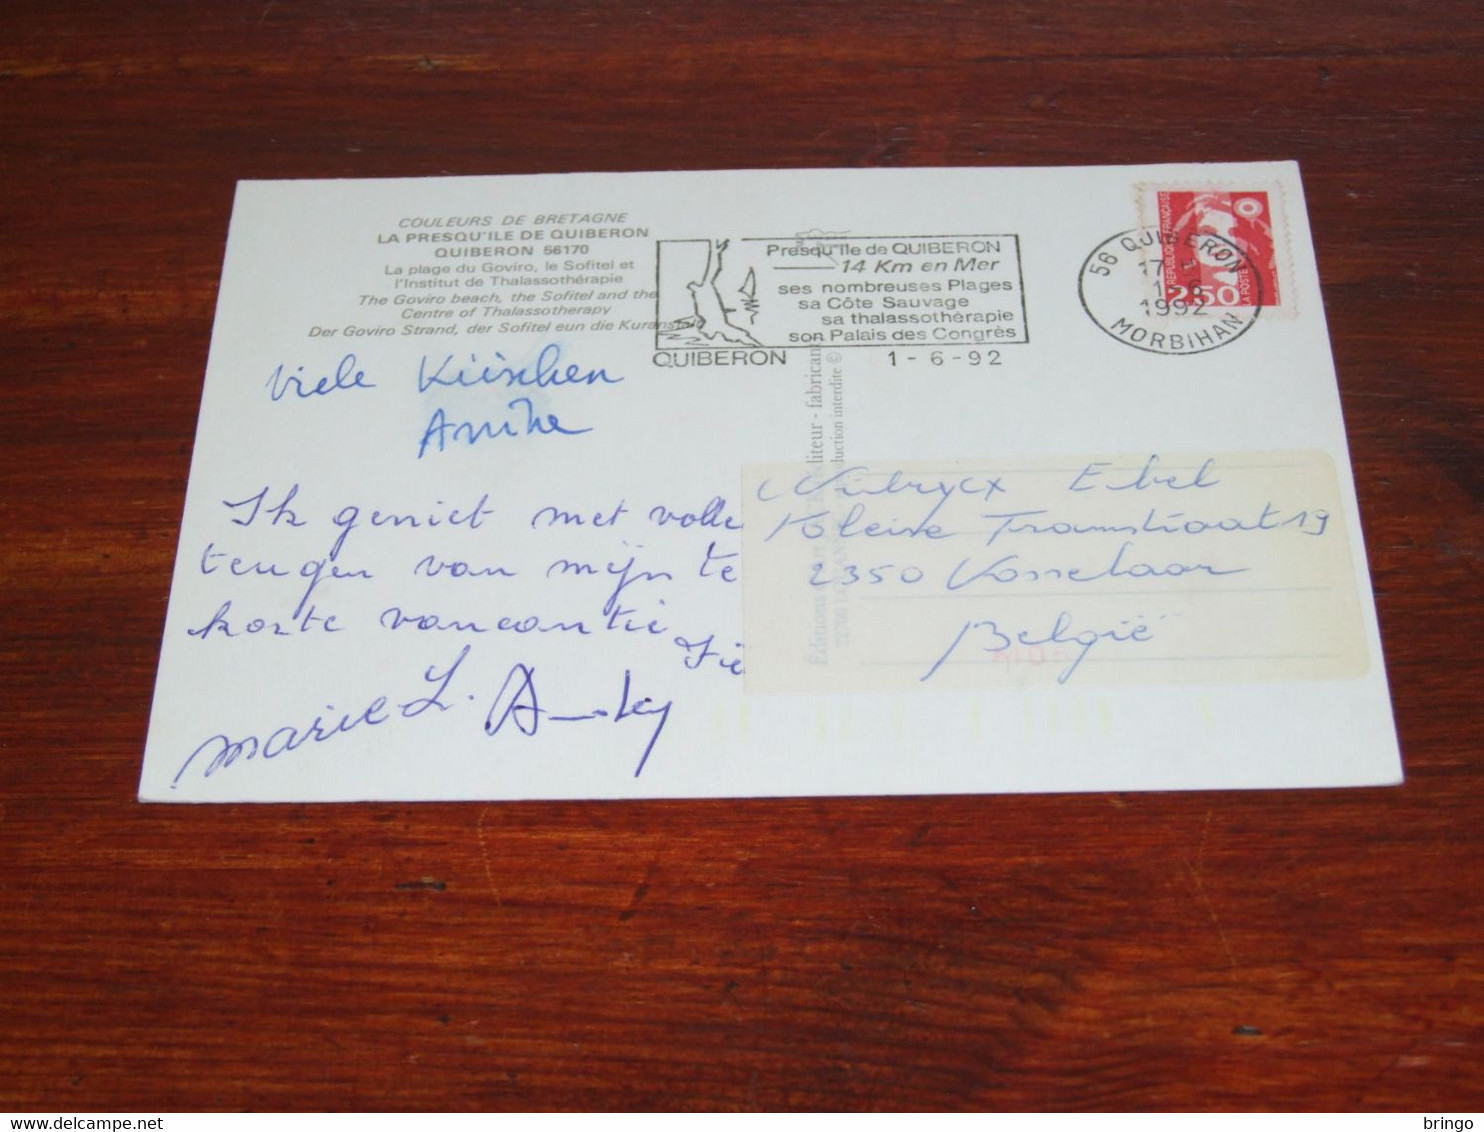 COULEURS DE BRETAGNE
LA PRESQU'ILE DE QUIBERON
QUIBERON 56170
La plage du Goviro, le Sofitel et
l'Institut de Thalassothérapie
The Goviro beach, the Sofitel and the
Centre of Thalassotherapy
Der Goviro Strand, der Sofitel eun die Kuranstalt
Presqu'île de QUIBERON
14 Km en Mer
ses nombreuses Plages
sa Côte Sauvage
sa thalassothérapie
son Palais des Congrès
QUIBERON
1-6-92
56 QUIBERON
1992
MORBIHAN
RÉPUBLIQUE FRANÇAISE
2,50
LA POSTE
Viele Küsschen
Ik geniet met volle
teugen van mijn te
korte vancantie
Marie-L.
Ebel
19
2350 Vosselaar
België
bringo